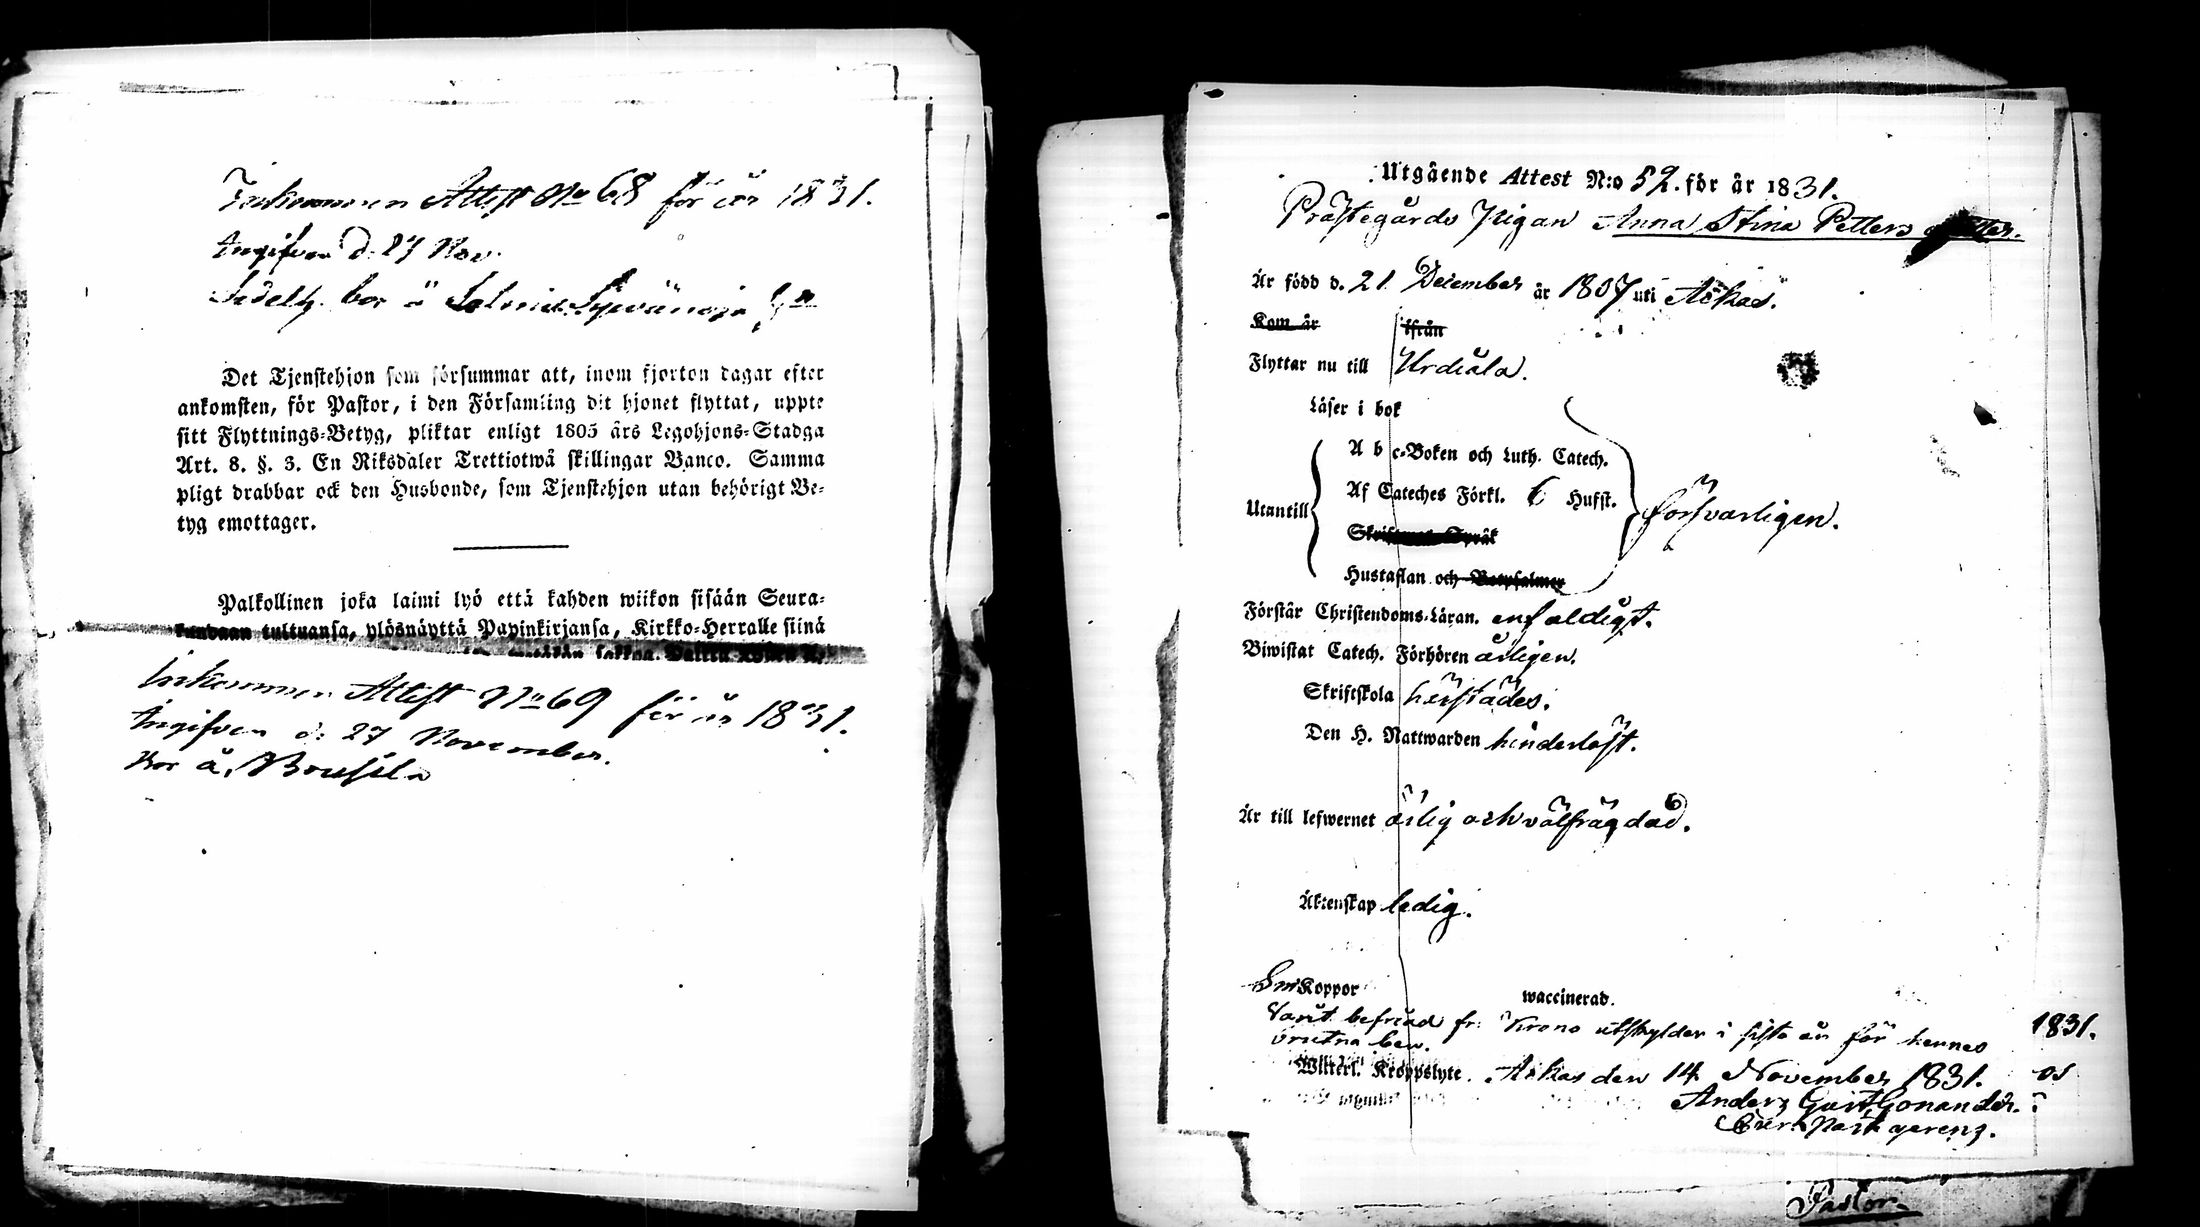 Inkommen Attest No 68 för år 1831.
Angifven d. 27 Nov.
bor å
Det Tjenstehjon som försummar att, inom fjorton dagar efter
ankomsten, för Pastor, i den Församling dit hjonet flyttat, uppte
sitt Flyttnings-Betyg, pliktar enligt 1805 års Legohjons-Stadga
Art. 8. §. 3. En Riksdaler Trettiotwå skillingar Banco. Samma
pligt drabbar ock den Husbonde, som Tjenstehjon utan behörigt Be-
tyg emottager.
Palkollinen joka laimi lyö että kahden wiikon sisään Seura-
kundaan tultuansa, ylösnäyttä Papinkirjansa, Kirkko-Herralle siinä
Inkommen Attest No 69 för år 1831.
Angifven d: 27 November.
Bor å
Utgående Attest N:o 52. för år 1831.
Prästegårds Pigan Anna Stina Petters dotter.
Är född d. 21 December år 1807 uti Ackas.
Kom år ifrån
Flyttar nu till Urdiala.
Läser i bok
A b c-Boken och Luth. Catech.
Af Cateches Förkl. 6 Hufst.
Utantill försvarligen.
Skriftenes Språk
Hustaflan och Botpsalmer
Förstår Christendoms-Läran. enfaldigt.
Biwistat Catech. Förhören årligen.
Skriftskola härstädes.
Den H. Nattwarden hinderlöst.
Är till lefwernet ärlig och välfrägdad.
Äktenskap ledig.
SmKoppor waccinerad.
Varit befriad fr: Krono utskylder i sista år för hennes
1831.
Witterl. Kroppslyte. Ackas den 14 November 1831.
Anders Gust.
Pastor